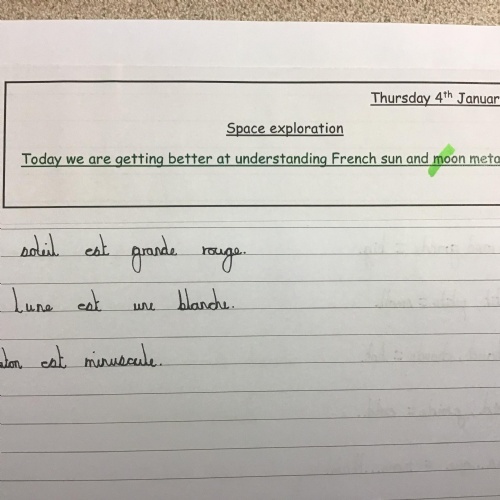 Thursday 4th Januar
Space exploration
Today we are getting better at understanding French sun and moon meta
soleil est grande rouge.
Lune est une blanche.
est minuscule.